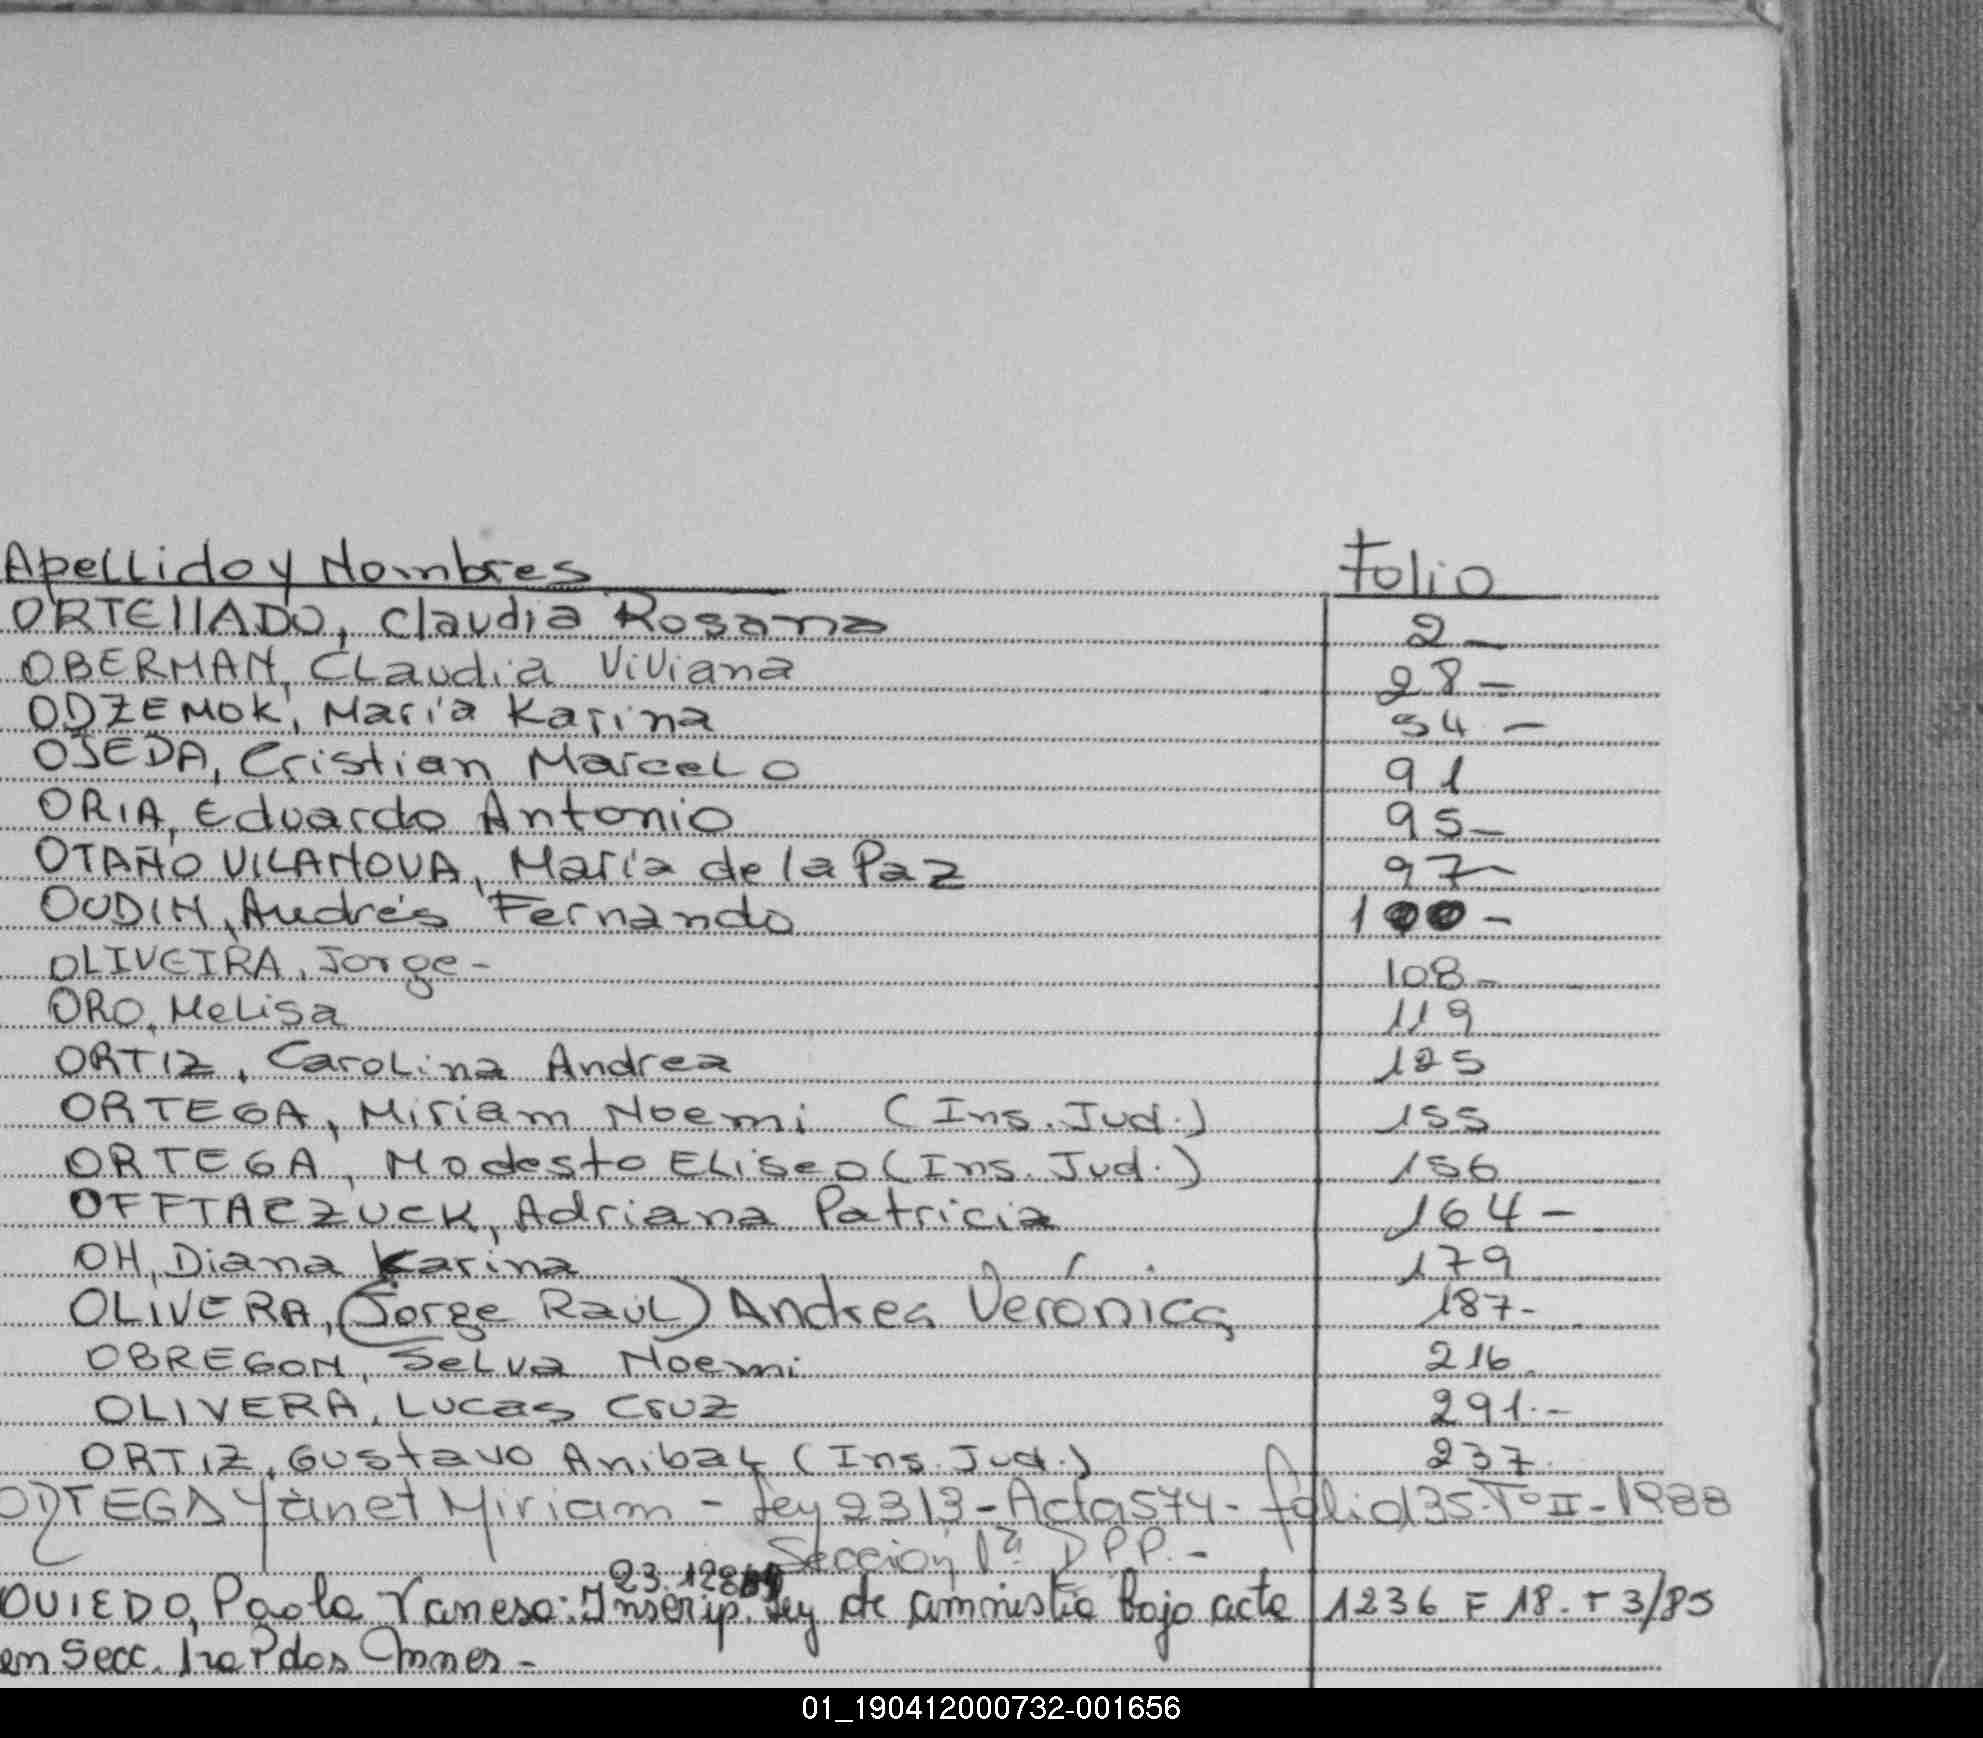 Apellido y Nombres Folio
ORTELLADO, Claudia Rosana 2-
OBERMAN, Claudia Viviana 28-
ODZEMOK, Maria Karina 54-
OJEDA, Cristian Marcelo 91
ORIA, Eduardo Antonio 95-
OTAÑO VILANOVA, María de la Paz 97-
OUDIN, Andrés Fernando 100-
OLIVEIRA, Jorge- 108-
ORO, Melisa 119
ORTIZ, Carolina Andrea 125
ORTEGA, Miriam Noemi (Ins. Jud.) 155
ORTEGA, Modesto Eliseo (Ins. Jud.) 156
OFFTACZUCK, Adriana Patricia 164-
OH, Diana Karina 179
OLIVERA, (Jorge Raúl) Andrea Verónica 187-
OBREGON, Selva Noemi 216.
OLIVERA, Lucas Cruz 291.-
ORTIZ, Gustavo Anibal (Ins. Jud.) 237.
ORTEGA Yanet Miriam - Ley 2313 - Acta 574 - folio 135 - Tº II - 1988
Sección 1ª D P P. -
OVIEDO, Paola Vanesa: Inscrip. Ley de amnistia bajo acta 1236 F 18. T 3/85
en Secc. 1ra Pdas